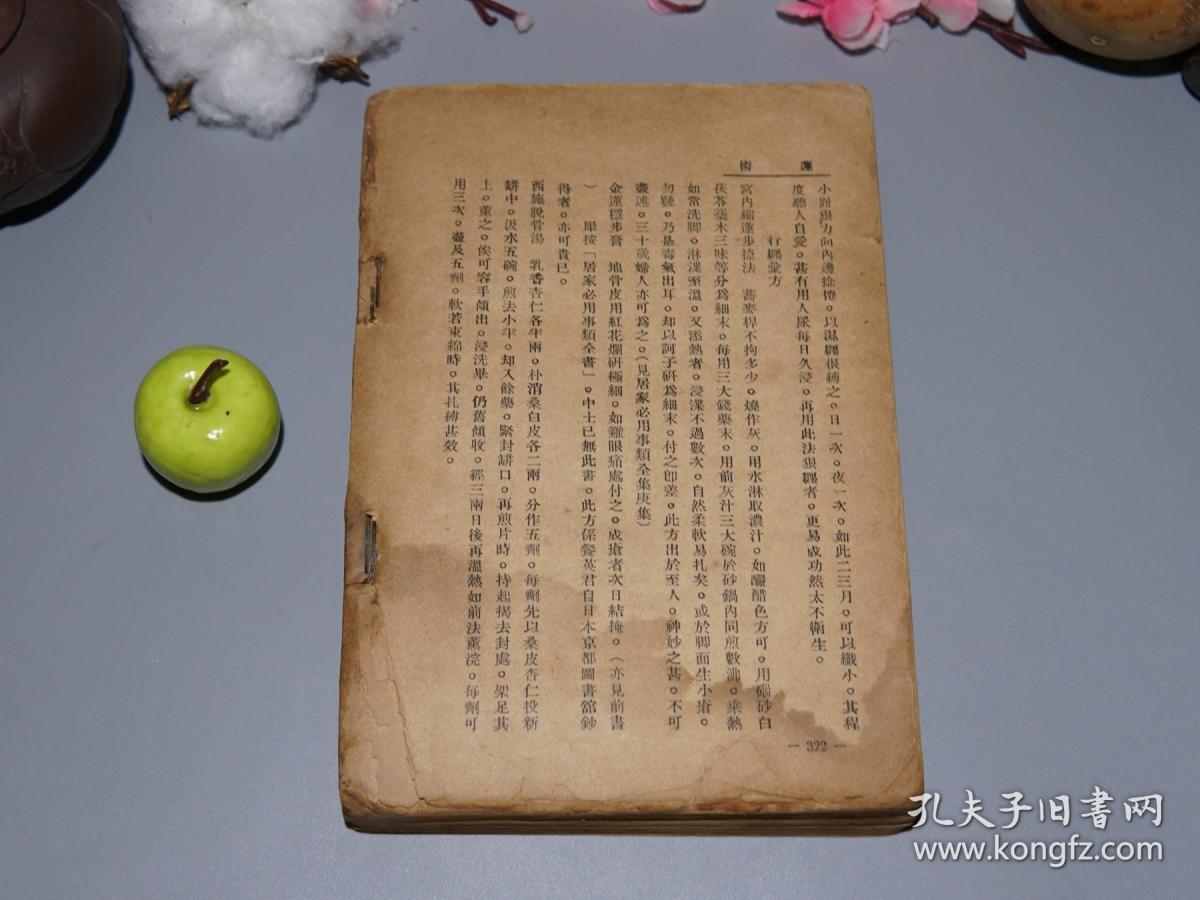 蓮術
小趾狠力向內邊捻捲。以濕纒很縛之。日一次。夜一次。如此二三月。可以纖小。其程
度聽人自愛。甚有用人尿每日久浸。再用此法狠纒者。更易成功然太不衛生。
行纒彙方
宮內縮蓮步捷法　蕎麥桿不拘多少。燒作灰。用水淋取濃汁。如釅醋色方可。用碙砂白
茯苓藁木三味等分爲細末。每用三大錢藥末。用前灰汁三大碗於砂鍋內同煎數沸。乘熱
如常洗脚。淋渫至溫。又添熱者。浸渫不過數次。自然柔軟易扎矣。或於脚面生小瘡。
勿疑。乃是毒氣出耳。却以訶子研爲細末。付之卽差。此方出於至人。神妙之甚。不可
盡述。三十歲婦人亦可爲之。（見居家必用事類全集庚集）
金蓮穩步膏　地骨皮用紅花爛研極細。如雞眼痛處付之。成瘡者次日結掩。（亦見前書
）　犀按「居家必用事類全書」。中土已無此書。此方係 英君自日本京都圖書舘鈔
得者。亦可貴已。
西施脫骨湯　乳香杏仁各半兩。朴消桑白皮各二兩。分作五劑。每劑先以桑皮杏仁投新
缾中。汲水五碗。煎去小半。却入餘藥。緊封缾口。再煎片時。持起揭去封處。架足其
上。薰之。俟可容手傾出。浸洗畢。仍舊傾收。經三兩日後再溫熱如前法薰浣。每劑可
用三次。盡及五劑。軟若束綿時。其扎縛甚效。
— 322 —
孔夫子旧书网
www.kongfz.com